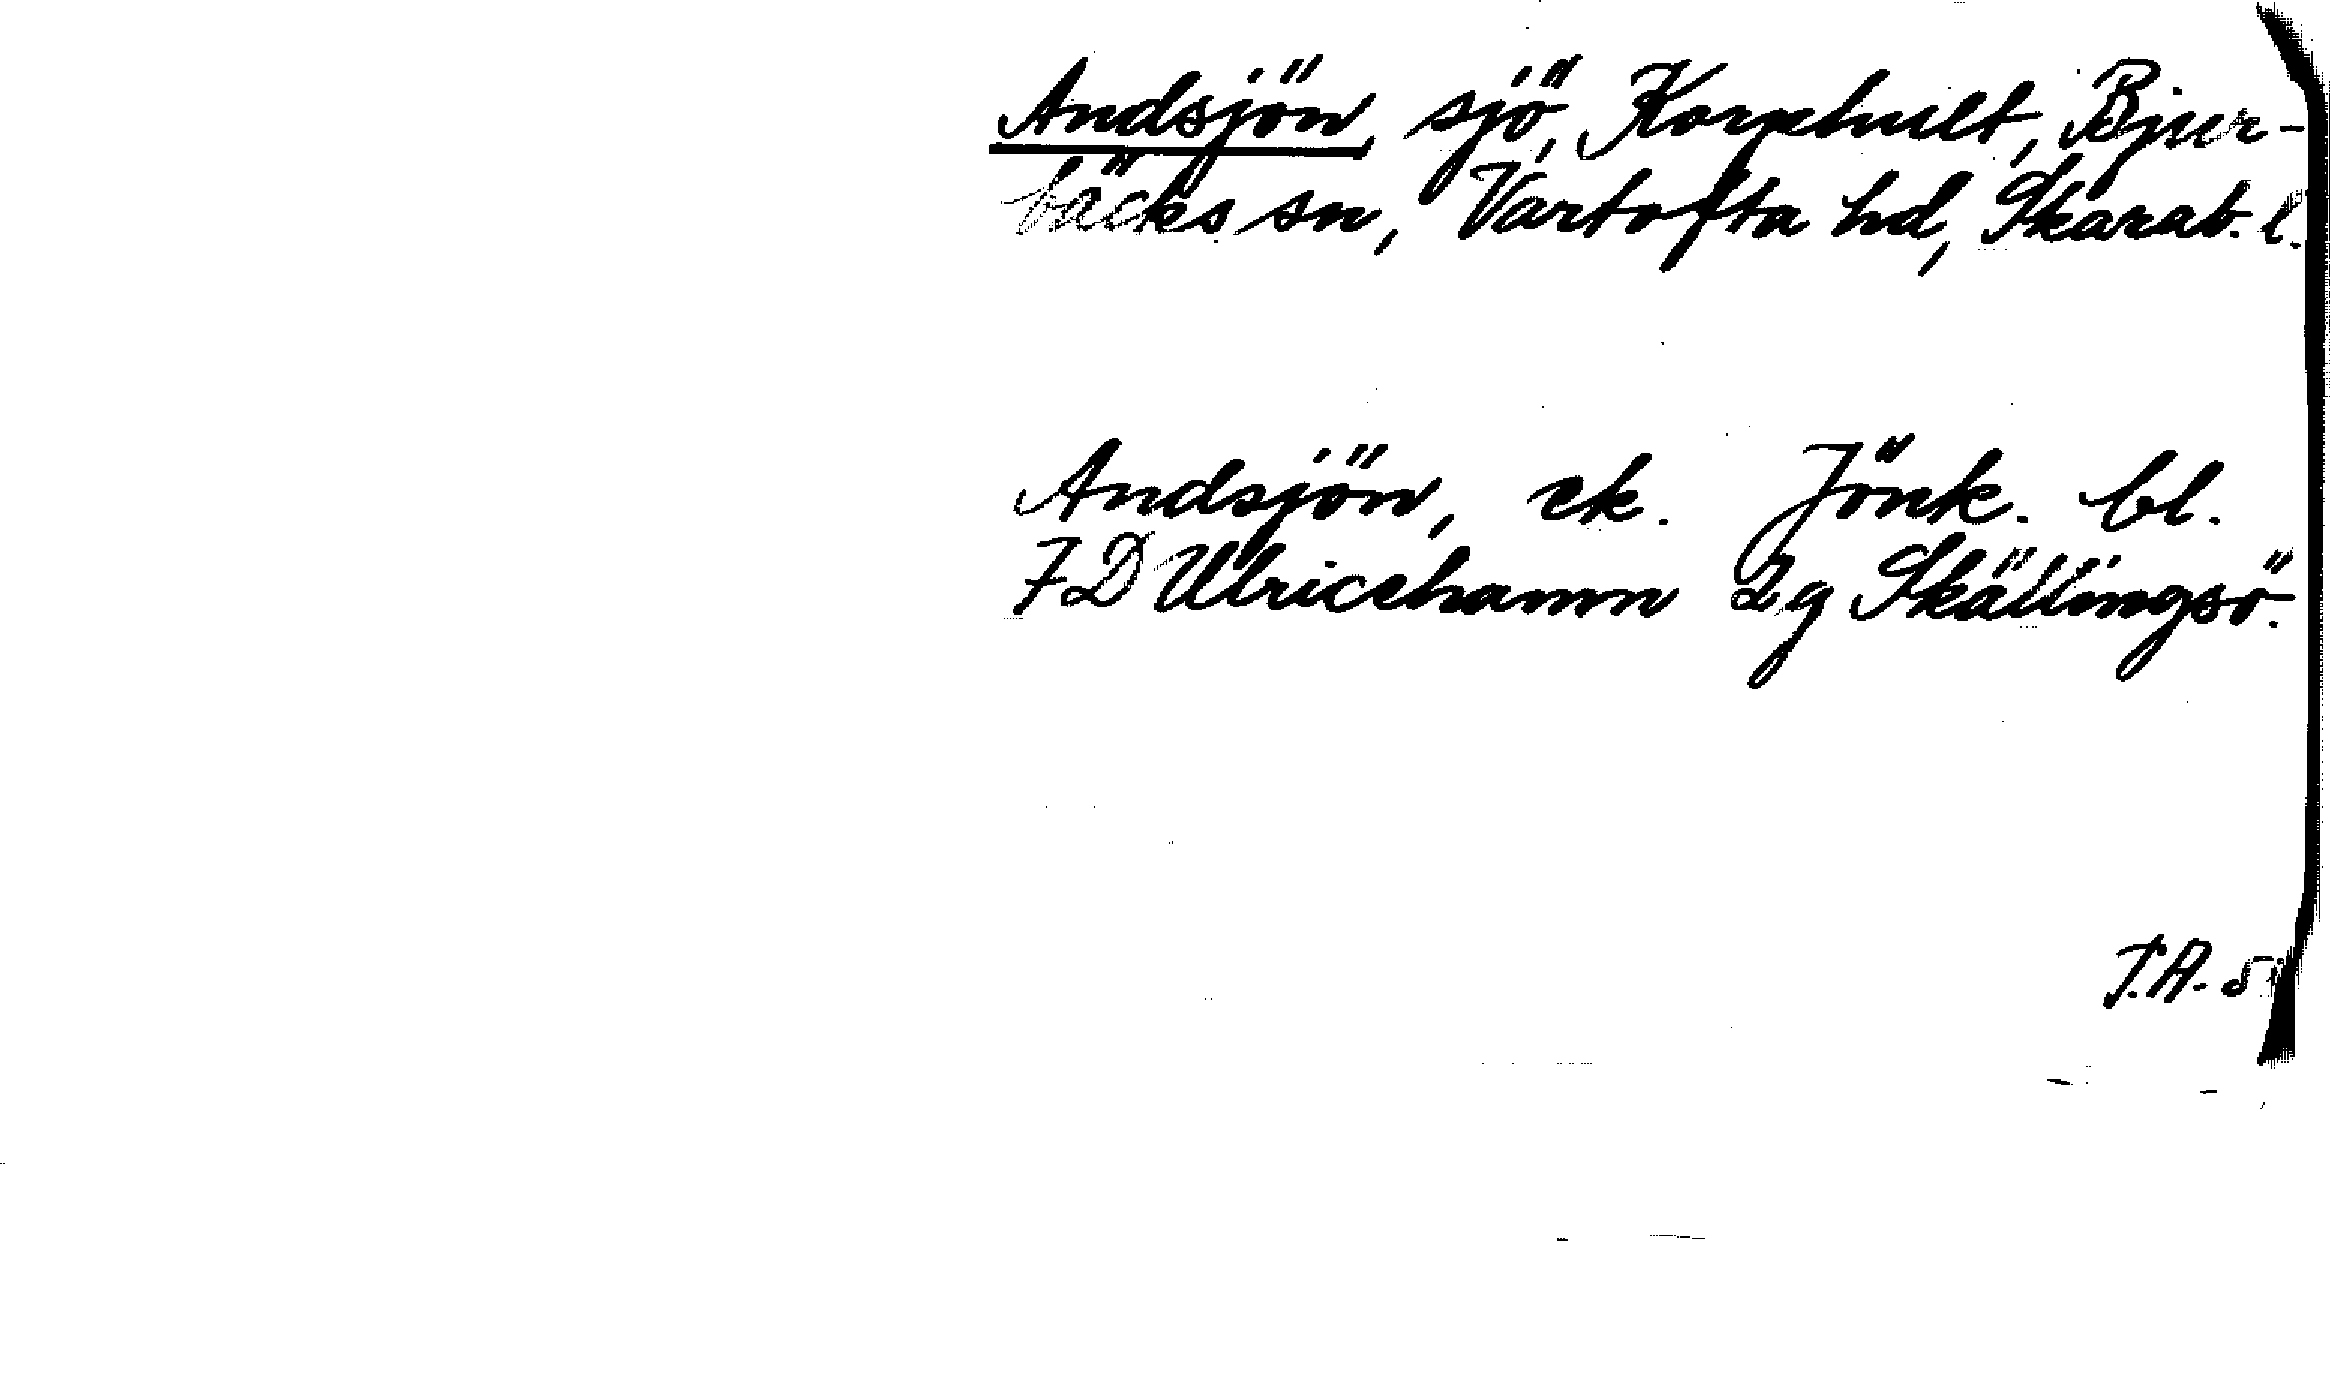 Andsjön, sjö, Korphult, Bjur-
bäcks sn, Vartofta hd, Skarab. l.
Andsjön, ek. Jönk. bl.
7D Ulricehamn 2g Skällingsö.
T.A.